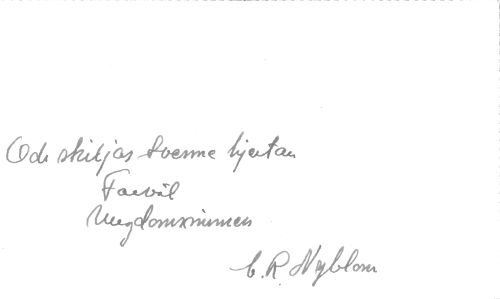 Och skiljas tvenne hjertan
Farväl
Ungdomsminnen
C. R. Nyblom